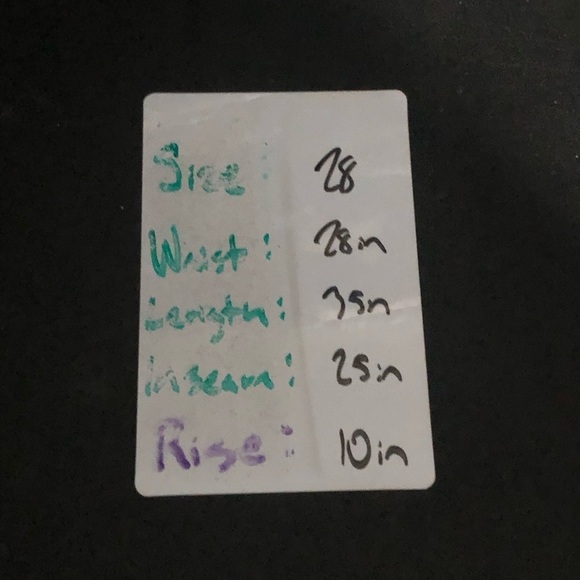 Size: 28
Waist: 28in
Length: 35n
inseam: 25in
Rise: 10in